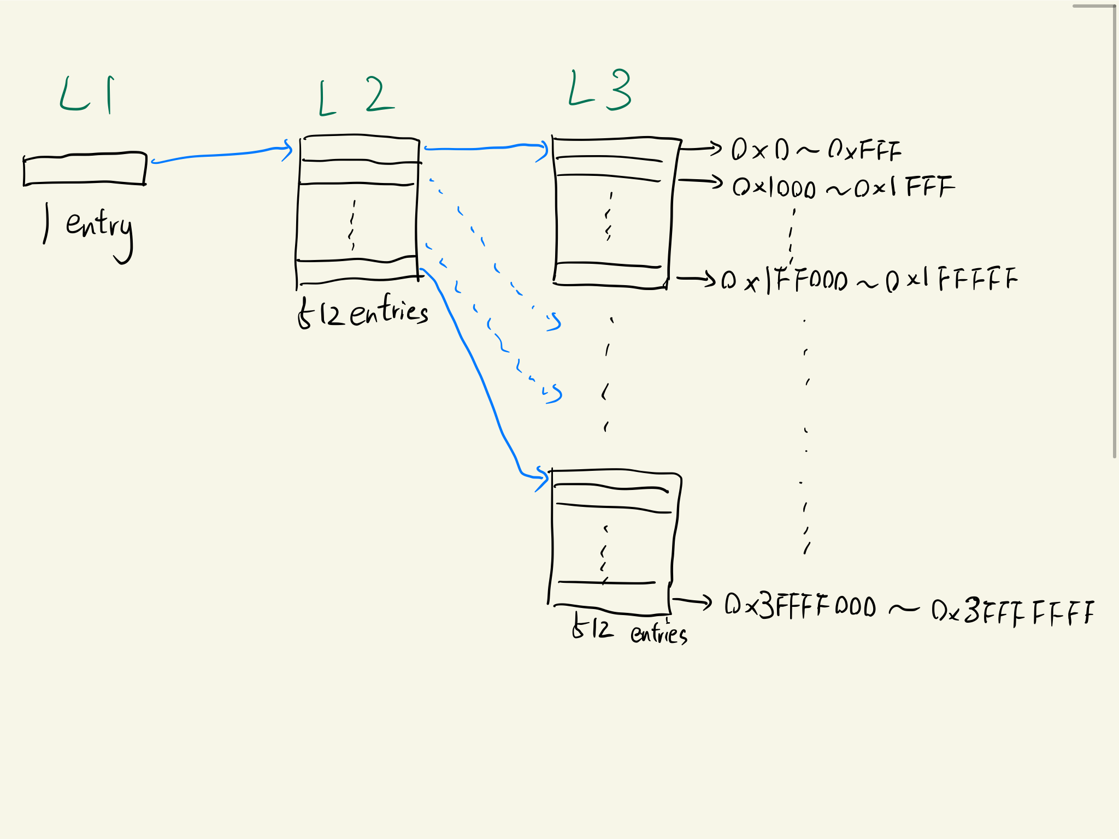 L1
L2
L3
1 entry
512 entries
0x0 ~ 0xFFF
0x1000 ~ 0x1FFF
0x1FF000 ~ 0x1FFFFF
0x3FFFF000 ~ 0x3FFFFFFF
512 entries